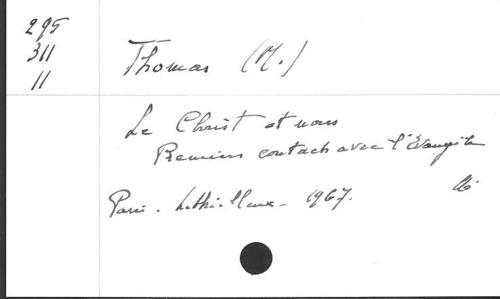 295
311
11
Thomas (M.)
Le Christ et nous
Premiers contacts avec l'Évangile
Paris. Lethielleux - 1967.